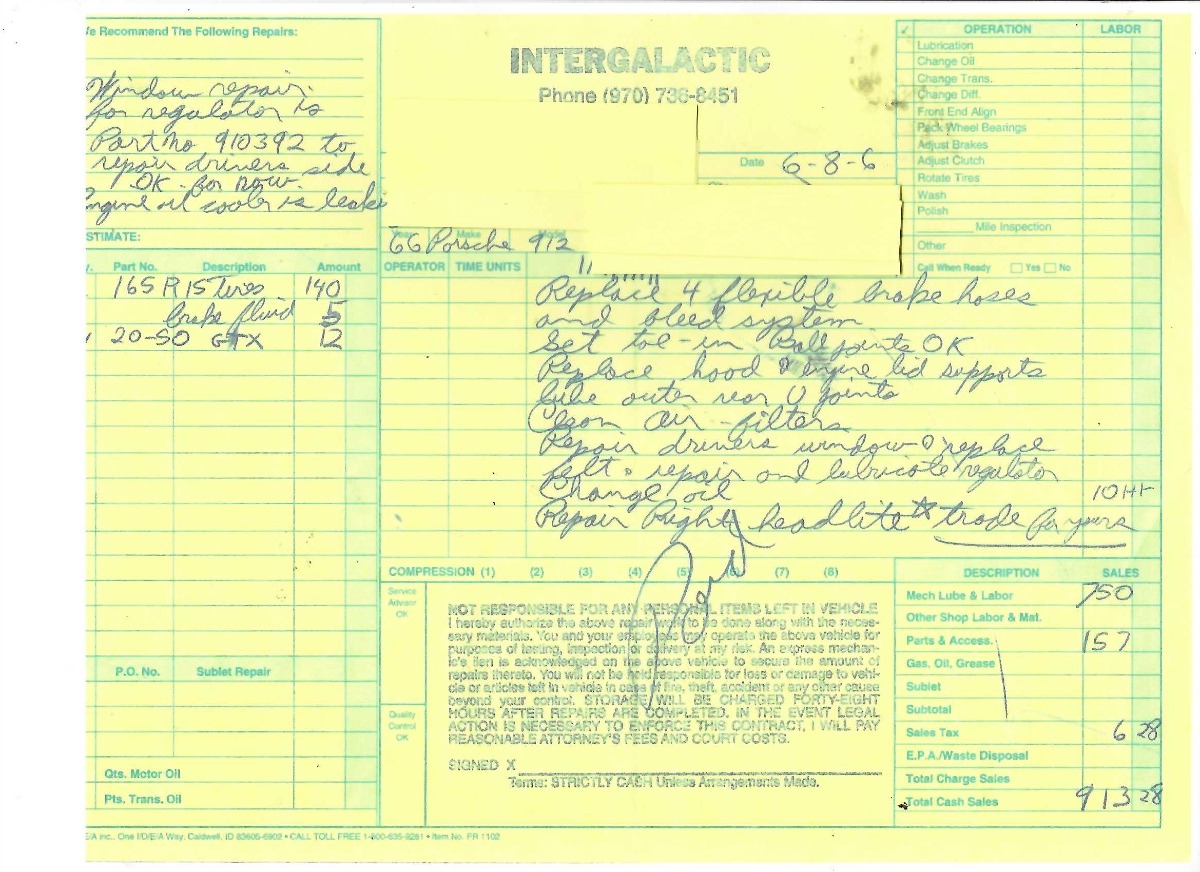 We Recommend The Following Repairs:
Window repair
for regulator is
Part no 910392 to
repair drivers side
OK for now.
Engine oil cooler is leaki
STIMATE:
Part No. Description Amount
165 R 15 Tires 140
brake fluid 5
20-50 GTX 12
P.O. No. Sublet Repair
Qts. Motor Oil
Pts. Trans. Oil
INTERGALACTIC
Phone (970) 736-8451
Date 6-8-6
Year Make Model
66 Porsche 912
OPERATOR TIME UNITS
Replace 4 flexible brake hoses
and bleed system
Set toe-in Ball joints OK
Replace hood & engine lid supports
lube outer rear U joints
Clean air filters
Repair drivers window & replace
felt & repair and lubricate regulator
Change oil
10 Hr
Repair Right headlite * trade for yours
Paid
COMPRESSION (1) (2) (3) (4) (5) (6) (7) (8)
Service
Advisor
OK
Quality
Control
OK
NOT RESPONSIBLE FOR ANY PERSONAL ITEMS LEFT IN VEHICLE
I hereby authorize the above repair work to be done along with the neces-
sary materials. You and your employees may operate the above vehicle for
purposes of testing, inspection or delivery at my risk. An express mechan-
ic's lien is acknowledged on the above vehicle to secure the amount of
repairs thereto. You will not be held responsible for loss or damage to vehi-
cle or articles left in vehicle in case of fire, theft, accident or any other cause
beyond your control. STORAGE WILL BE CHARGED FORTY-EIGHT
HOURS AFTER REPAIRS ARE COMPLETED. IN THE EVENT LEGAL
ACTION IS NECESSARY TO ENFORCE THIS CONTRACT, I WILL PAY
REASONABLE ATTORNEY'S FEES AND COURT COSTS.
SIGNED X
Terms: STRICTLY CASH Unless Arrangements Made.
✓ OPERATION LABOR
Lubrication
Change Oil
Change Trans.
Change Diff.
Front End Align
Pack Wheel Bearings
Adjust Brakes
Adjust Clutch
Rotate Tires
Wash
Polish
Mile Inspection
Other
Call When Ready Yes No
DESCRIPTION SALES
Mech Lube & Labor 750
Other Shop Labor & Mat.
Parts & Access. 157
Gas, Oil, Grease
Sublet
Subtotal
Sales Tax 6 28
E.P.A./Waste Disposal
Total Charge Sales
Total Cash Sales 913 28
E/A Inc., One I/D/E/A Way, Caldwell, ID 83605-6902 • CALL TOLL FREE 1-800-635-9261 • Item No. PR 1102